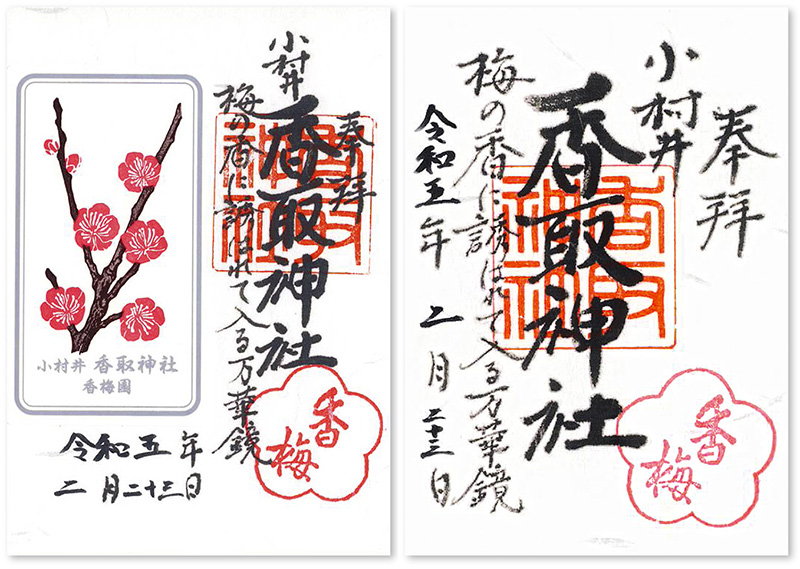 奉拝
小村井
香取神社
梅の香に誘はれて入る万華鏡
香梅
小村井 香取神社
香梅園
令和五年
二月二十三日
奉拝
小村井
香取神社
香取神社
梅の香に誘はれて入る万華鏡
令和五年 二月二十三日
香梅